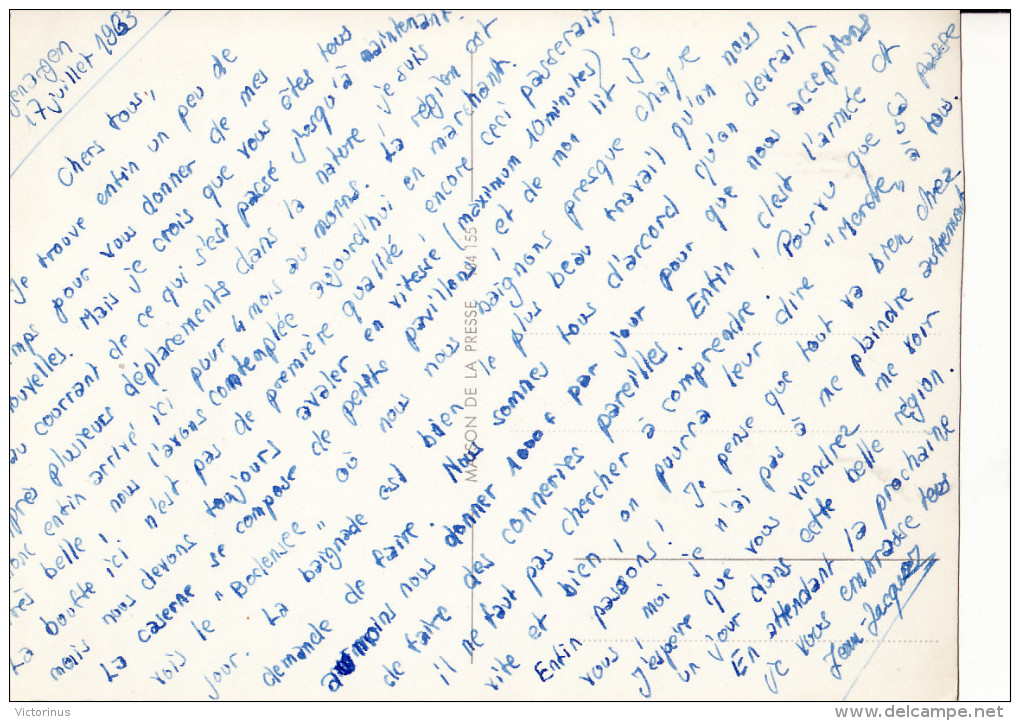 17 juillet 1963
Chers tous,
Je trouve enfin un peu de
temps pour vous donner de mes
nouvelles. Mais je crois que vous êtes tous
au courrant de ce qui s'est passé jusqu'à maintenant.
après plusieurs déplacements dans la nature je suis
donc enfin arrivé ici pour 4 mois au moins. La région est
très belle! nous l'avons contemplée aujourd'hui en marchant.
La bouffe ici n'est pas de première qualité! encore ceci passerait,
mais nous devons toujours avaler en vitesse (maximum 10 minutes)
La caserne se compose de petits pavillons! et de mon lit je
vois le "Bodensee" où nous nous baignons presque chaque
jour. La baignade est bien le plus beau travail qu'on nous
demande de faire. Nous sommes tous d'accord qu'on devrait
au moins nous donner 1000f par jour pour que nous acceptions
de faire des conneries pareilles. Enfin! c'est l'armée et
il ne faut pas chercher à comprendre. Pourvu que ça passe
vite et bien! on pourra leur dire "Merde" à tous.
Enfin passons! Je pense que tout va bien chez
vous! moi je n'ai pas à me plaindre autrement
J'espère que vous viendrez me voir
un jour dans cette belle région.
En attendant la prochaine
je vous embrasse tous
Jean-Jacques
MAISON DE LA PRESSE 104 155
Victorinus
delcampe.net